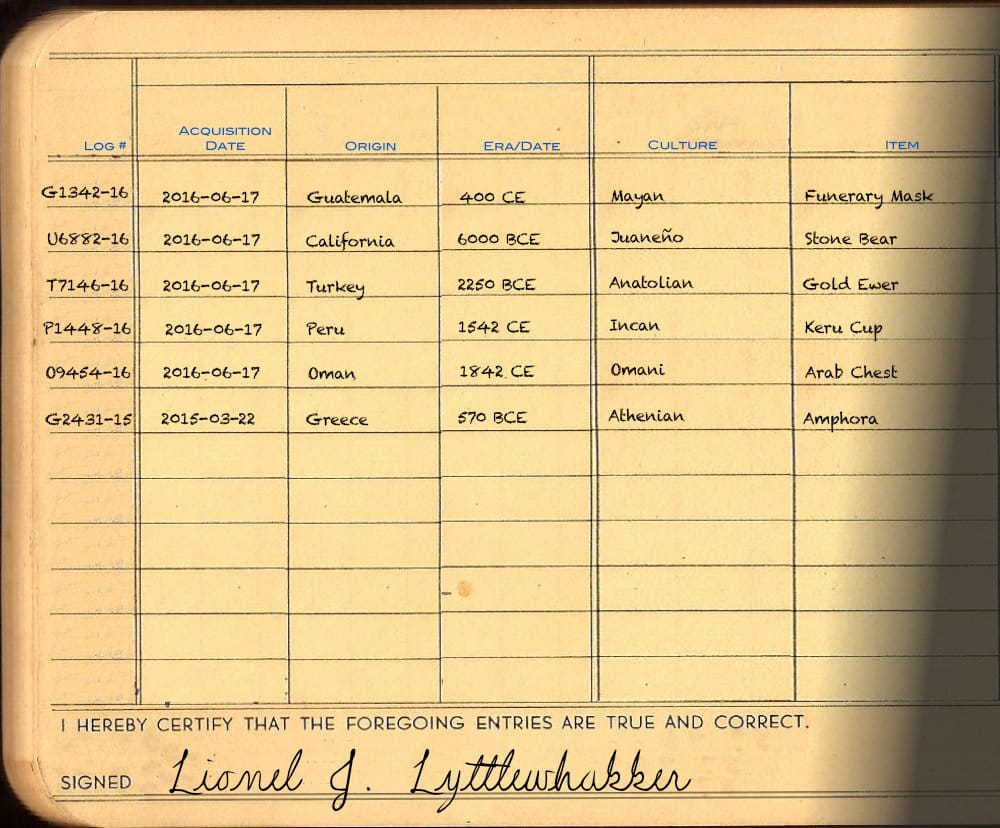 Log # Acquisition Date Origin Era/Date Culture Item
G1342-16 2016-06-17 Guatemala 400 CE Mayan Funerary Mask
U6882-16 2016-06-17 California 6000 BCE Juaneño Stone Bear
T7146-16 2016-06-17 Turkey 2250 BCE Anatolian Gold Ewer
P1448-16 2016-06-17 Peru 1542 CE Incan Keru Cup
O9454-16 2016-06-17 Oman 1842 CE Omani Arab Chest
G2431-15 2015-03-22 Greece 570 BCE Athenian Amphora
I HEREBY CERTIFY THAT THE FOREGOING ENTRIES ARE TRUE AND CORRECT.
SIGNED Lionel J. Lyttlewhakker